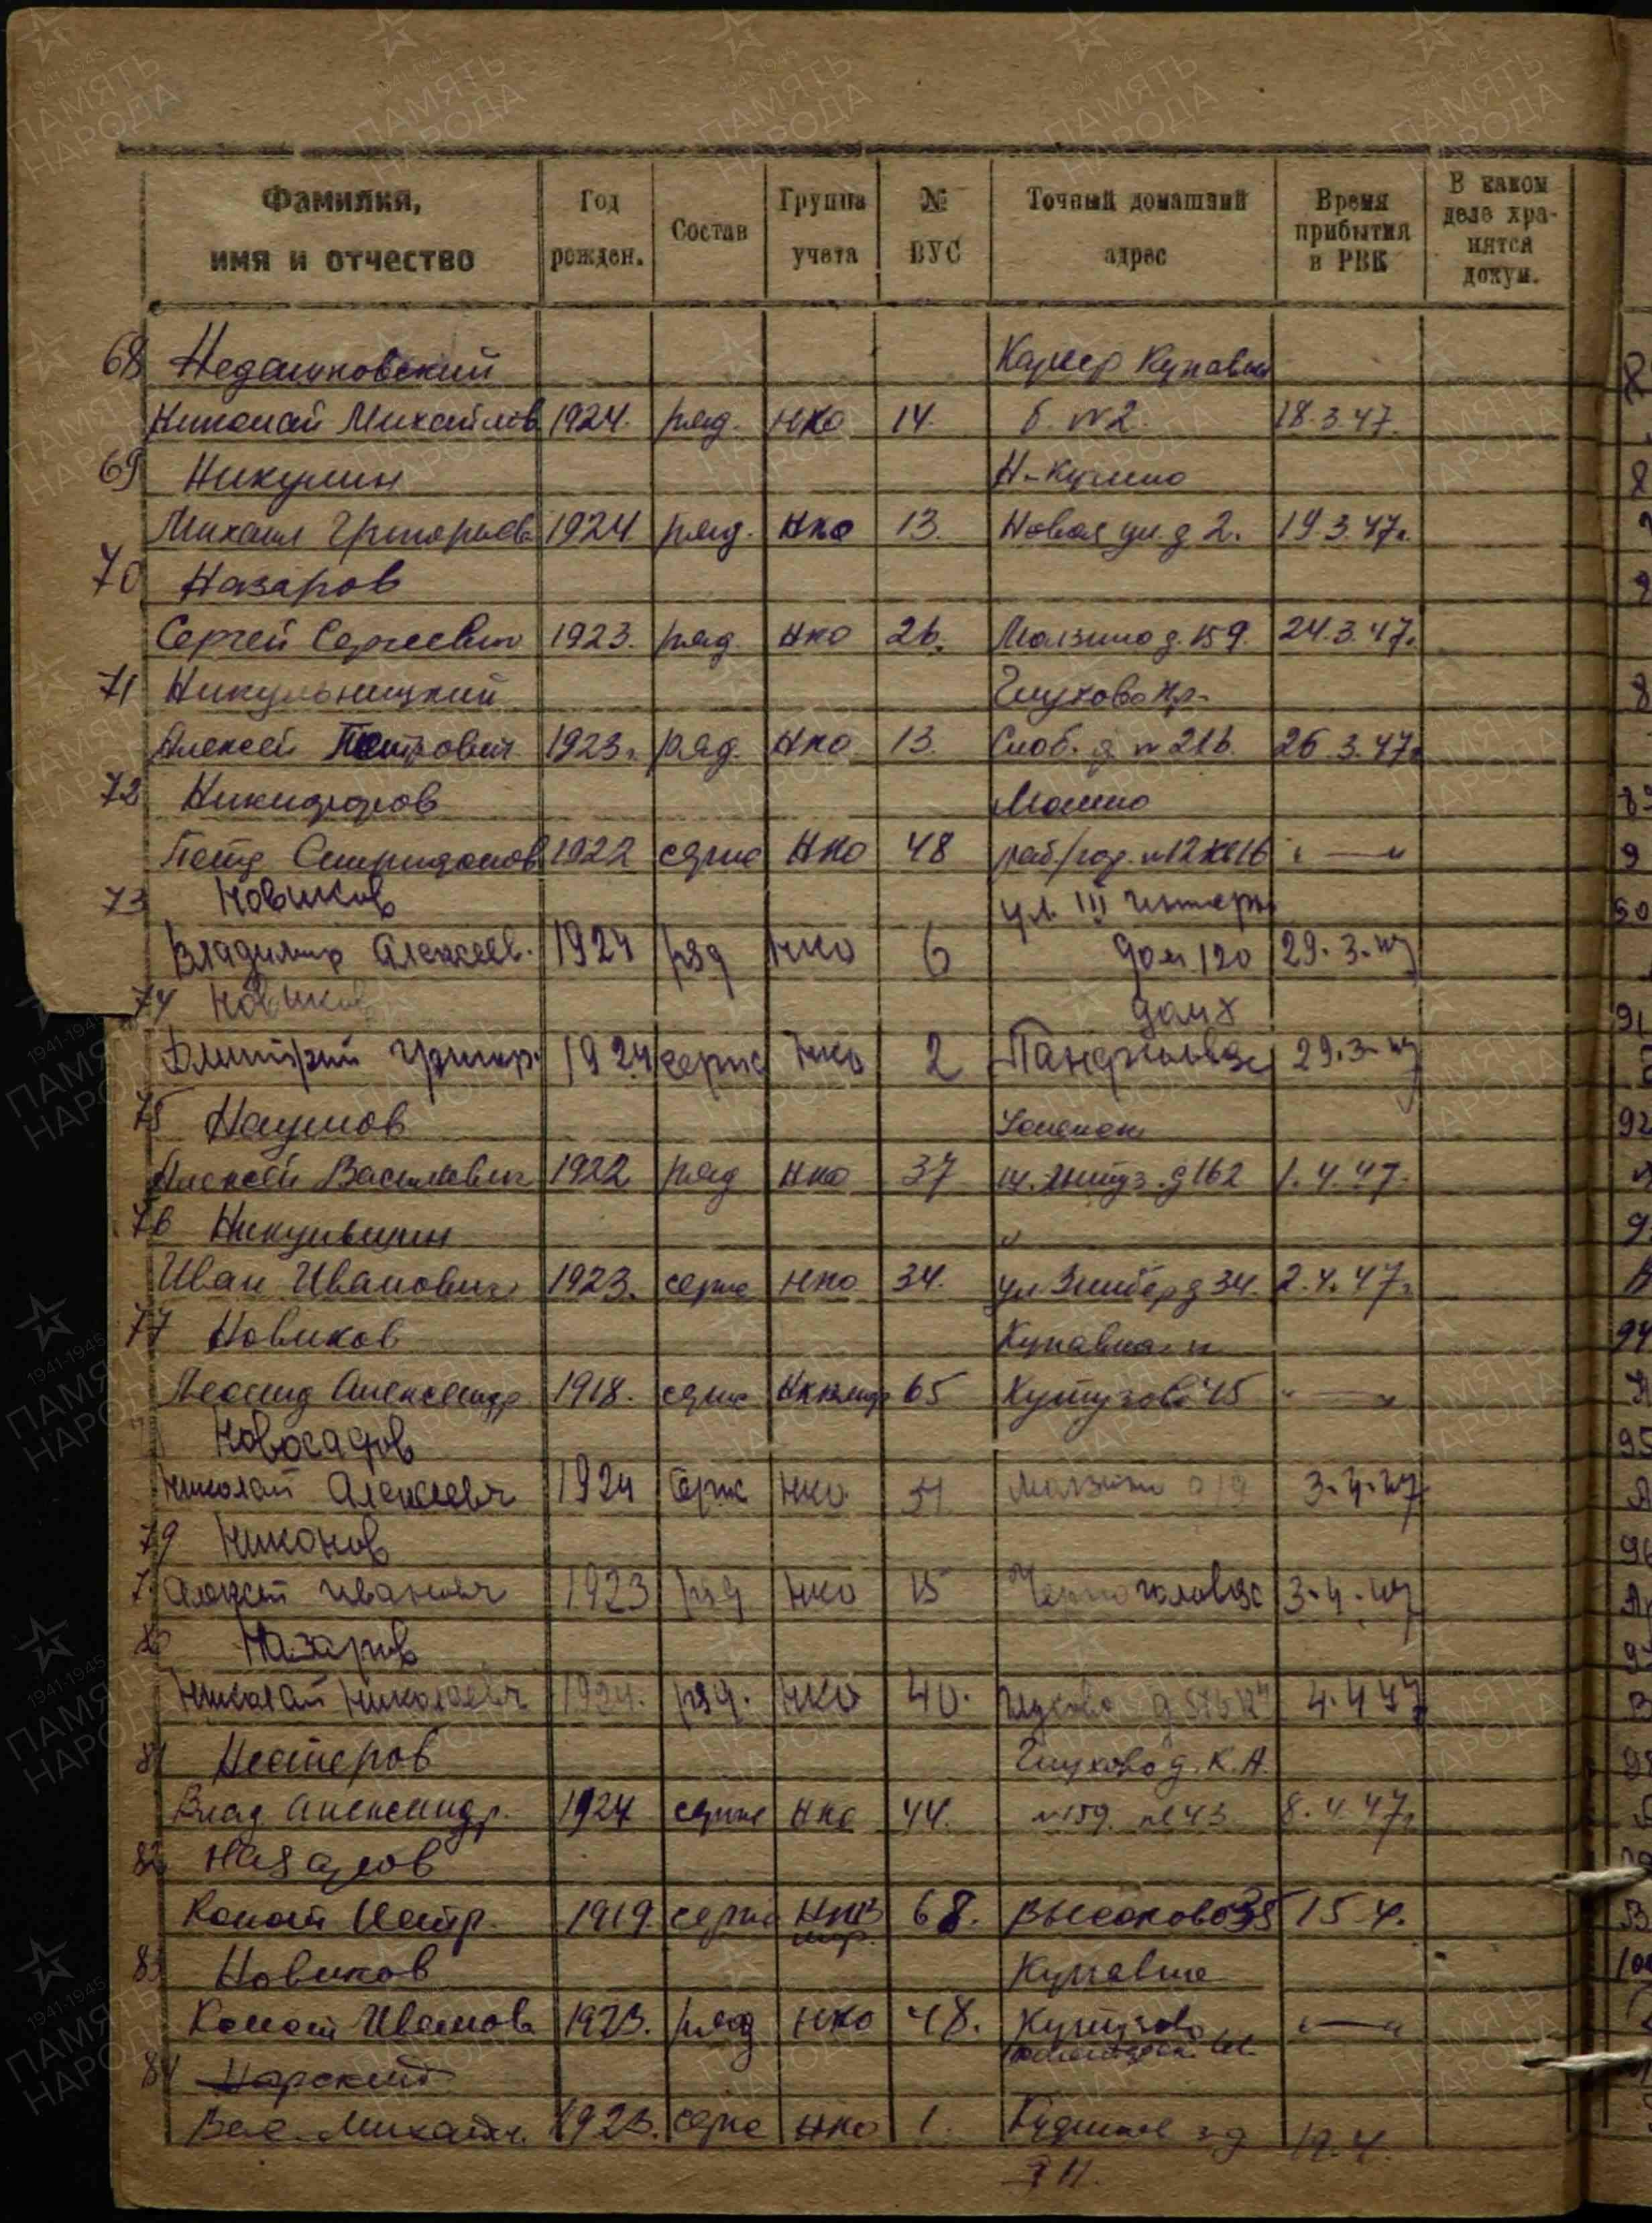 Фамилия, имя и отчество
Год рожден.
Состав
Группа учета
№ ВУС
Точный домашний адрес
Время прибытия в РВК
В каком деле хранятся докум.
68 Недашковский
Николай Михайлов 1924. ряд. НКО 14. б. №2. 18.3.47
69 Никулин Н-Кулино
Михаил Григорьев 1924 ряд. НКО 13. Новая ул. д 2. 19.3.47г.
70 Назаров
Сергей Сергеевич 1923. ряд. НКО 26. Молзино д. 159. 24.3.47г.
71 Никульницкий Глухово
Алексей Петрович 1923г. ряд. НКО 13. Слоб. д. № 21б. 26.3.47г
72 Никифоров
Петр Спиридонов 1922 серж НКО 48 " — "
73 Новиков ул. III интерн
Владимир Алексеев. 1924 ряд НКО 6 дом 120 29.3.47
74 Новиков
Дмитрий Григор. 1924 серж НКО 2 29.3.47
75 Наумов
Алексей Васильевич 1922 ряд НКО 37 д 162 1.4.47.
76 Никульшин "
Иван Иванович 1923. серж НКО 34. д 34. 2.4.47г
77 Новиков Купавна
Леонид Александр. 1918. серж 65 Кутузово 45 " — "
Новосадов
Николай Алексеевич 1924 серж НКО Молзино 3.4.47
79 Никонов
Алексей Иванович 1923 ряд НКО 15 3.4.47
80 Назаров
Николай Николаевич 1924. ряд. НКО 40. Глухово 4.4.47
81 Нестеров Глухово д. К.А.
Влад Александр. 1924 серж НКО 44. №159. 43 8.4.47г
82 Назаров
Конст Петр. 1919. серж 68. Высоково 35 15.4.
83 Новиков Купавна
Конст Иванов 1923. ряд НКО 48. Кутузово " — "
84 Нарский
Вас. Михайл. 1923. серж НКО 1.